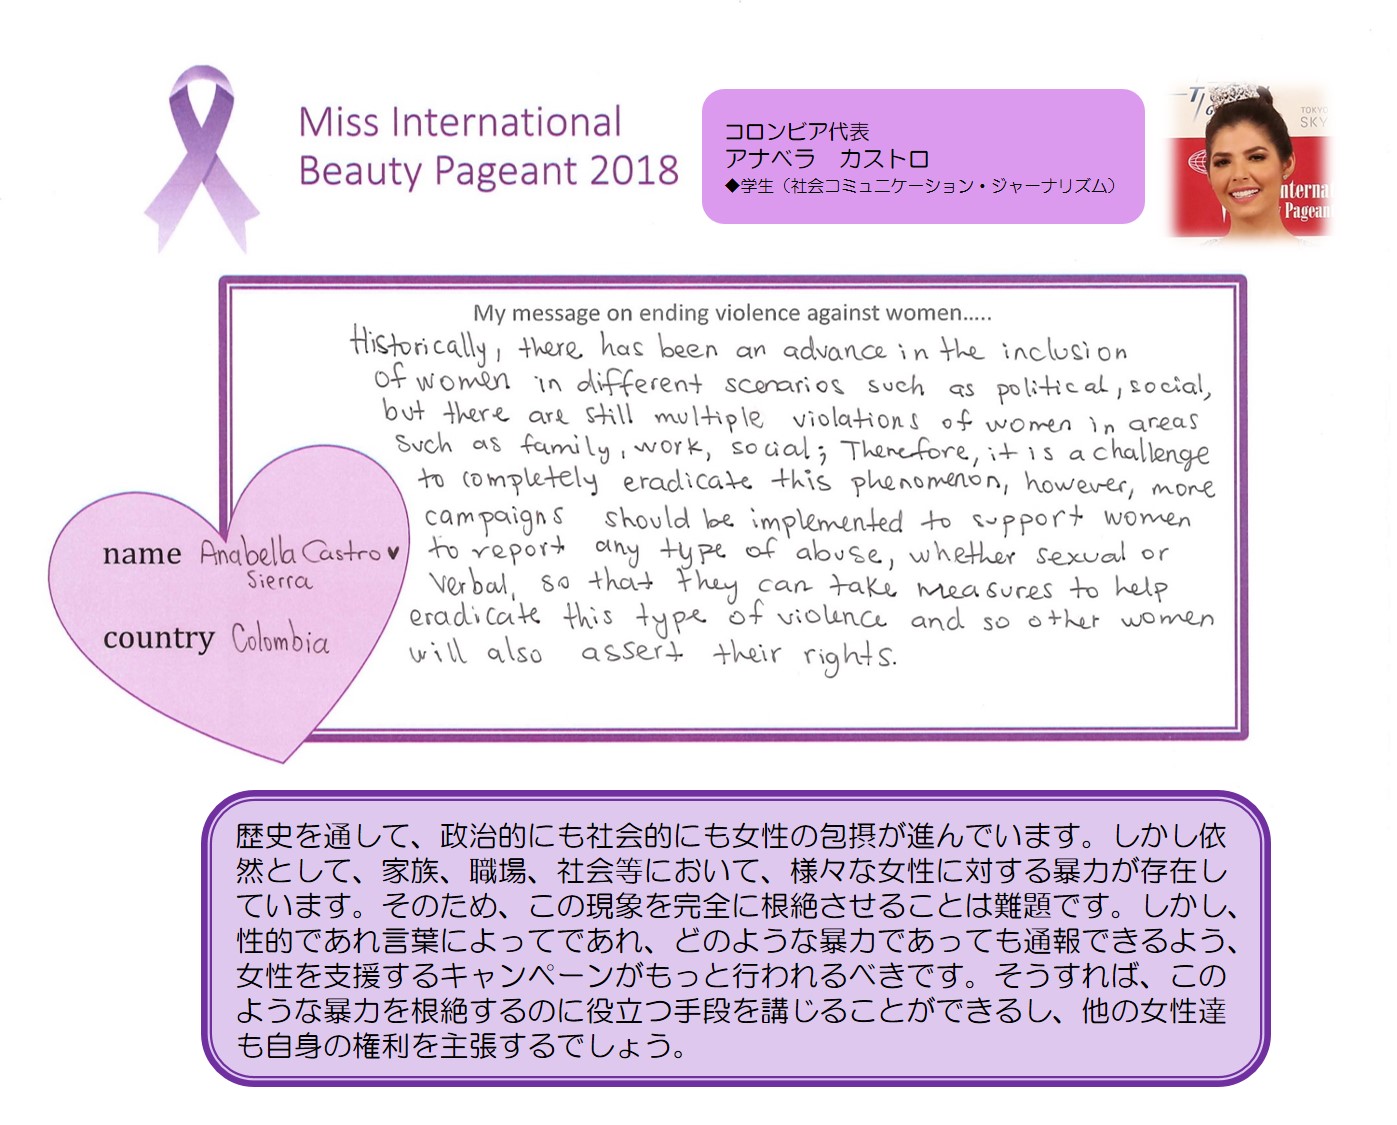 Miss International
Beauty Pageant 2018
コロンビア代表
アナベラ　カストロ
◆学生（社会コミュニケーション・ジャーナリズム）
TOKYO
SKY
nterna
Pagean
My message on ending violence against women…..
Historically, there has been an advance in the inclusion
of women in different scenarios such as political, social,
but there are still multiple violations of women in areas
such as family, work, social; Therefore, it is a challenge
to completely eradicate this phenomenon, however, more
campaigns should be implemented to support women
to report any type of abuse, whether sexual or
verbal, so that they can take measures to help
eradicate this type of violence and so other women
will also assert their rights.
name Anabella Castro ♥
Sierra
country Colombia
歴史を通して、政治的にも社会的にも女性の包摂が進んでいます。しかし依
然として、家族、職場、社会等において、様々な女性に対する暴力が存在し
ています。そのため、この現象を完全に根絶させることは難題です。しかし、
性的であれ言葉によってであれ、どのような暴力であっても通報できるよう、
女性を支援するキャンペーンがもっと行われるべきです。そうすれば、この
ような暴力を根絶するのに役立つ手段を講じることができるし、他の女性達
も自身の権利を主張するでしょう。